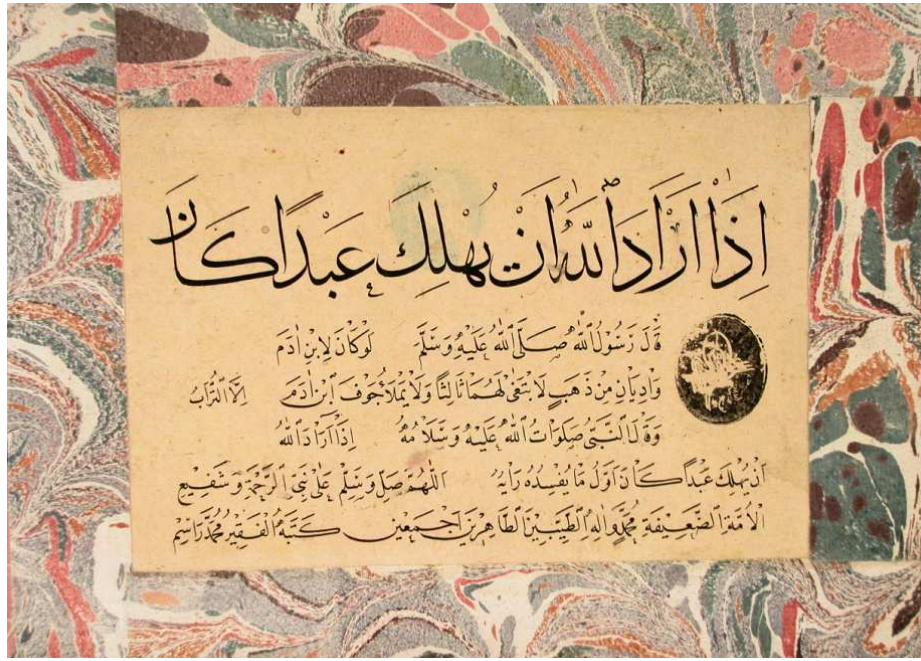 اِذَا اَرَادَ اللهُ اَنْ يُهْلِكَ عَبْدًا كَانَ
قَالَ رَسُولُ اللهِ صَلَّى اللهُ عَلَيْهِ وَسَلَّمَ لَوْ كَانَ لِابْنِ اٰدَمَ
وَادِيَانِ مِنْ ذَهَبٍ لَابْتَغٰى لَهُمَا ثَالِثًا وَلَا يَمْلَأُ جَوْفَ ابْنِ اٰدَمَ اِلَّا التُّرَابُ
وَقَالَ النَّبِيُّ صَلَوَاتُ اللهِ عَلَيْهِ وَسَلَامُهُ اِذَا اَرَادَ اللهُ
اَنْ يُهْلِكَ عَبْدًا كَانَ اَوَّلُ مَا يُفْسِدُهُ رَأْيَهُ اَللّٰهُمَّ صَلِّ وَسَلِّمْ عَلٰى نَبِيِّ الرَّحْمَةِ وَشَفِيعِ
الْاُمَّةِ الضَّعِيفَةِ مُحَمَّدٍ وَاٰلِهِ الطَّيِّبِينَ الطَّاهِرِينَ اَجْمَعِينَ كَتَبَهُ الْفَقِيرُ مُحَمَّدْ رَاسِمْ